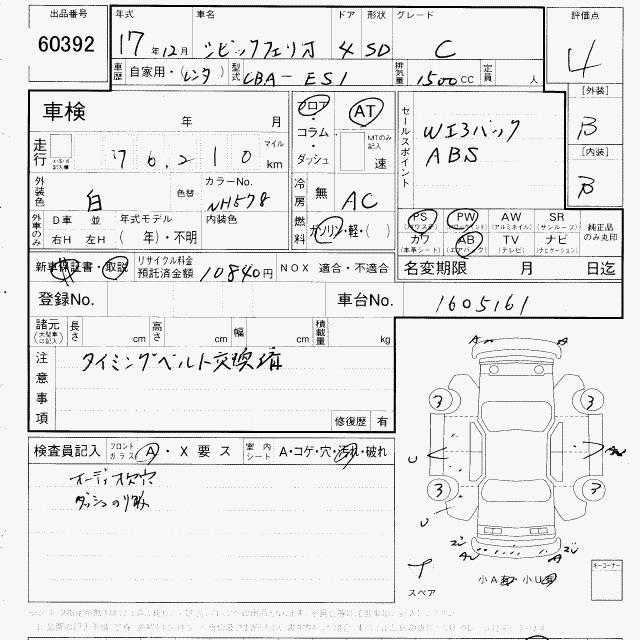 出品番号 年式 車名 ドア 形状 グレード 評価点
60392 17年12月 シビックフェリオ 4 SD C 4
車歴 自家用・(レンタ) 型式 CBA-ES1 排気量 1500cc 定員 人
[外装]
B
[内装]
B
車検 年 月
フロア・コラム・ダッシュ
AT
MTのみ記入 速
セールスポイント
Wエアバック
ABS
走行 76,210 マイル km
外装色 白 色替 カラーNo. NH578
冷房 無 AC
外車のみ D車 並 年式モデル 内装色
右H 左H ( 年)・不明
燃料 ガソリン・軽・( )
PS (パワステ) PW (パワーウィンド) AW (アルミホイル) SR (サンルーフ)
カワ (本革シート) AB (エアバック) TV (テレビ) ナビ (ナビゲーション)
純正品のみ丸印
新車保証書・取説 リサイクル料金預託済金額 10840円 NOX 適合・不適合
名変期限 月 日迄
登録No. 車台No. 1605161
諸元 (大型車のみ記入) 長さ cm 高さ cm 幅 cm 積載量 kg
注意事項
タイミングベルト交換済
修復歴 有
検査員記入 フロントガラス A・X要ス 室内シート A・コゲ・穴・汚れ・破れ
オーディオ穴
A
3 3
U
3 3
U
スペア
小A 小U
キーコーナー